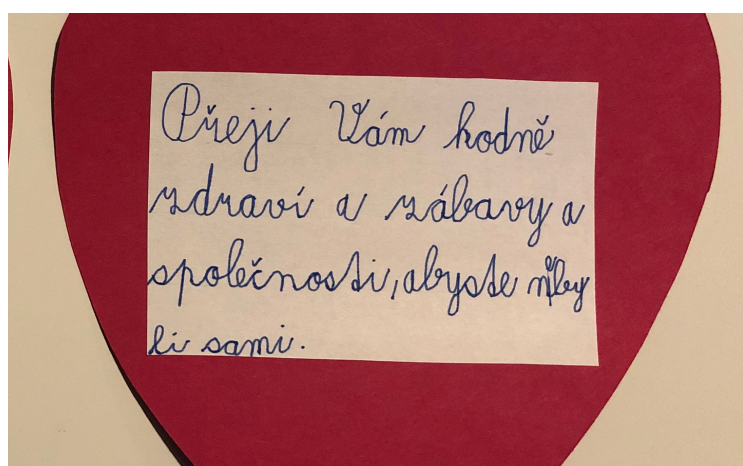 Přeji Vám hodně
zdraví a zábavy a
společnosti, abyste neby
li sami.